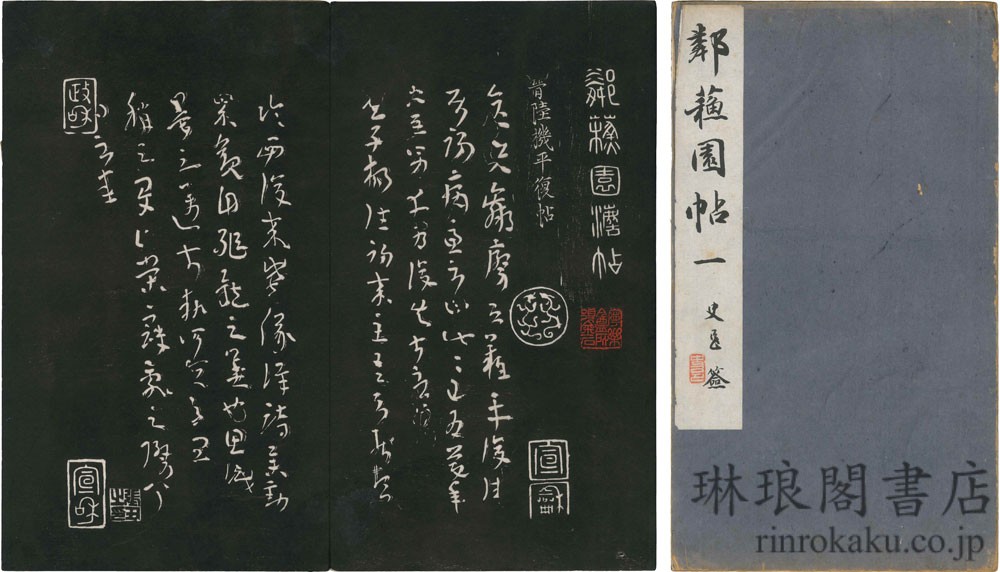 鄰蘇園灋帖
晉陸機平復帖
彥先羸瘵恐難平復往
屬初病慮不止此此已為慶承
使唯男幸為復失前憂耳
吳子楊往初來主吾不能盡
宣和
臨西復來威儀詳跱舉動
成觀自軀體之美也思識
量之邁前執所恒有宜
稱之夏伯榮寇亂之際聞
問不悉
政和
宣和
鄰蘓園帖 一
簽
琳琅閣書店
rinrokaku.co.jp